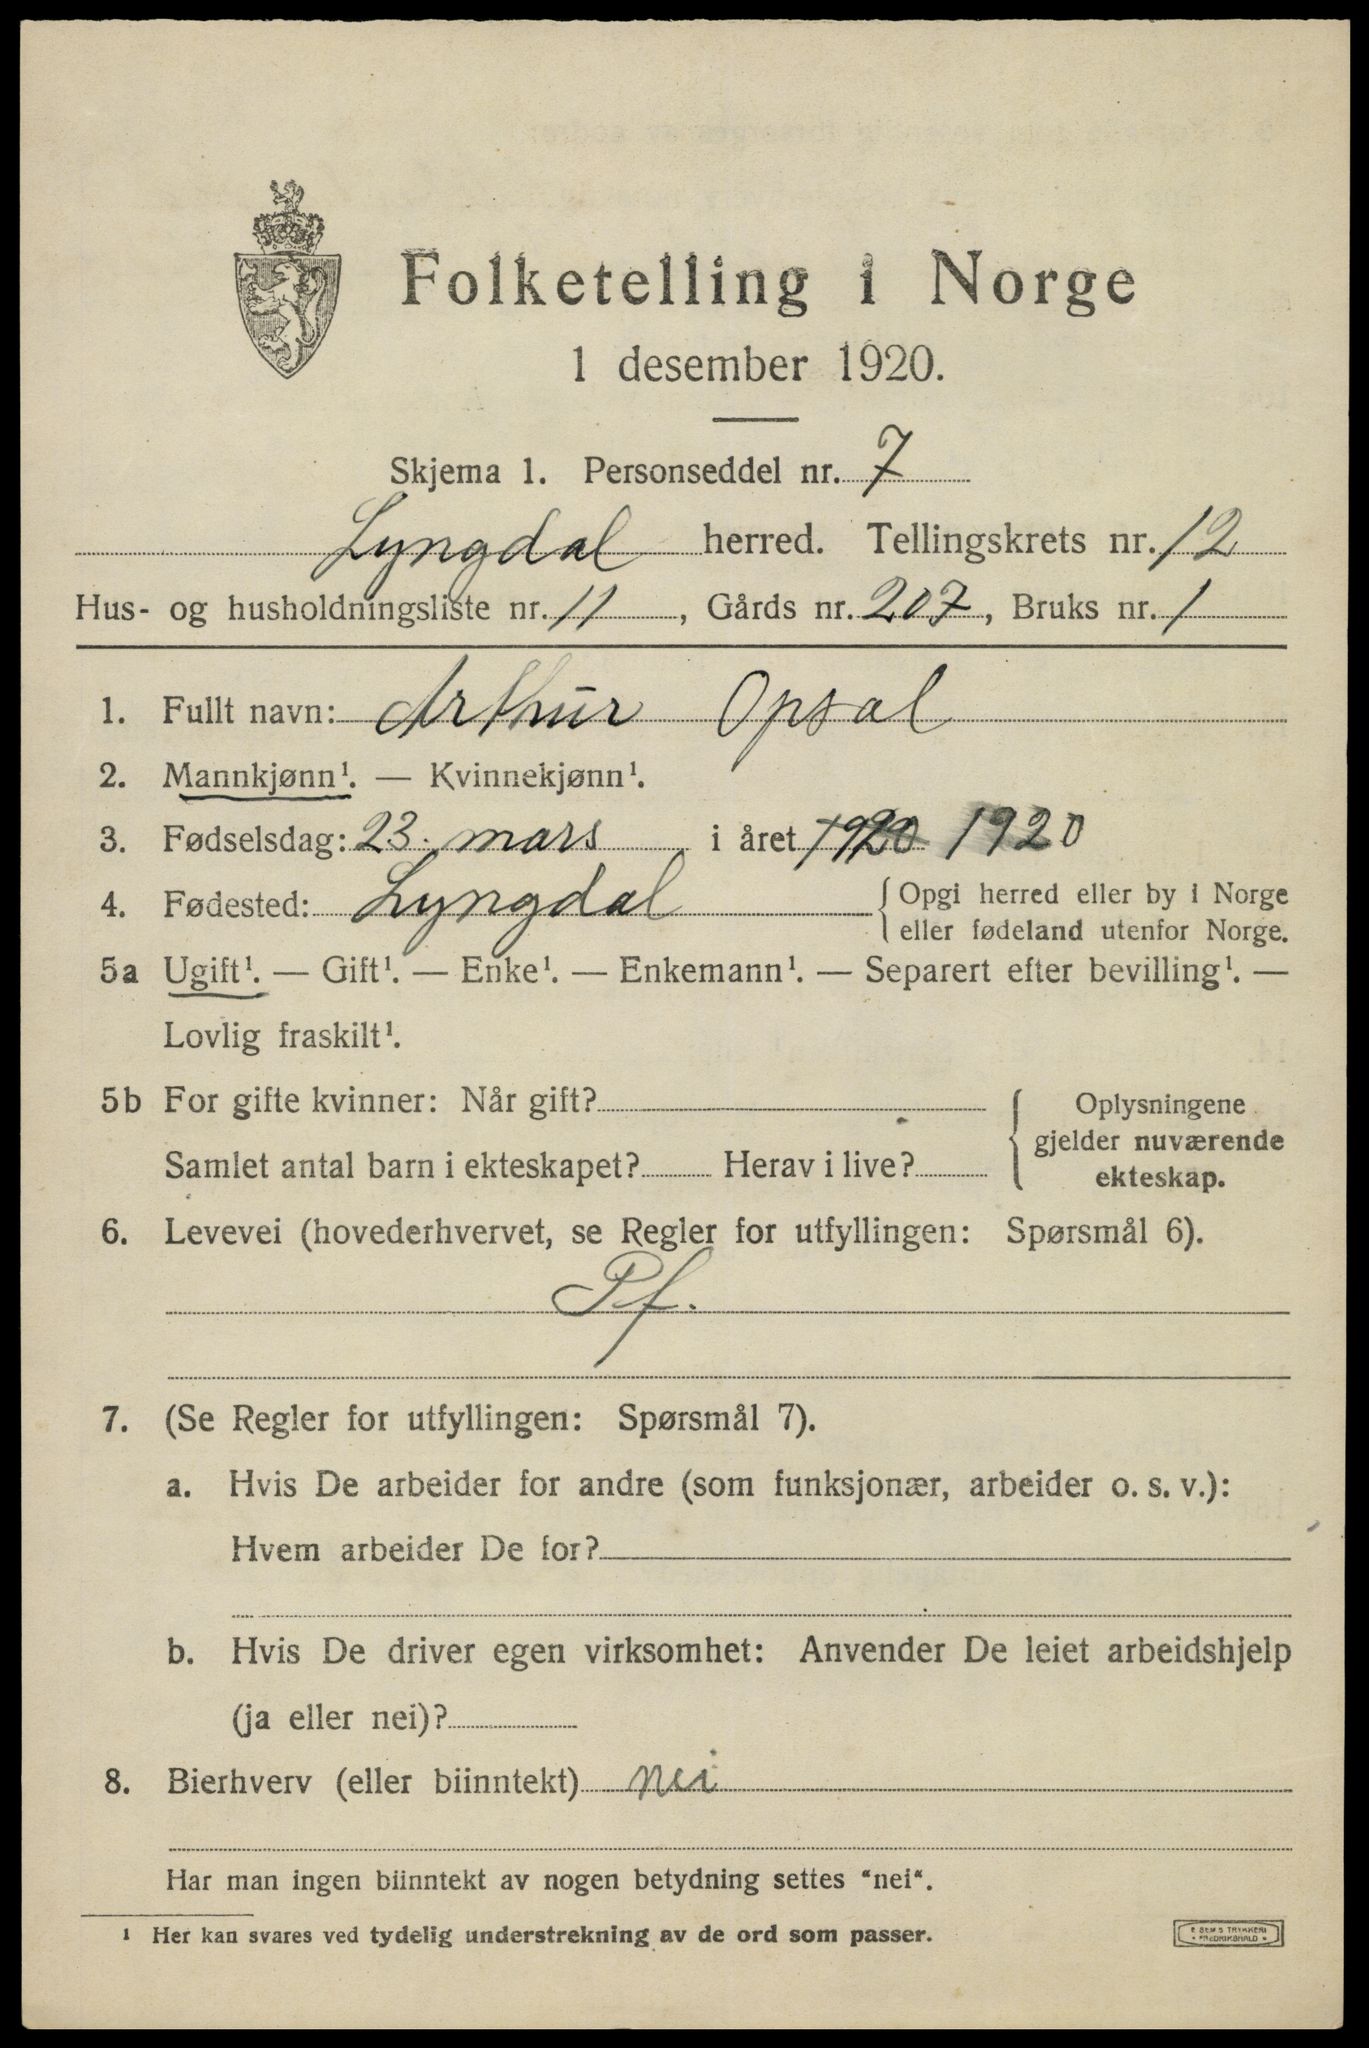 Folketelling i Norge
1 desember 1920.
Skjema 1. Personseddel nr. 7
Lyngdal herred. Tellingskrets nr. 12
Hus- og husholdningsliste nr. 11, Gårds nr. 207, Bruks nr. 1
1. Fullt navn: Arthur Opsal
2. Mannkjønn¹. — Kvinnekjønn¹.
3. Fødselsdag: 23. mars i året 1920 1920
4. Fødested: Lyngdal { Opgi herred eller by i Norge
eller fødeland utenfor Norge.
5a Ugift¹. — Gift¹. — Enke¹. — Enkemann¹. — Separert efter bevilling¹. —
Lovlig fraskilt¹.
5b For gifte kvinner: Når gift? { Oplysningene
gjelder nuværende
Samlet antal barn i ekteskapet? Herav i live? ekteskap.
6. Levevei (hovederhvervet, se Regler for utfyllingen: Spørsmål 6).
Pf.
7. (Se Regler for utfyllingen: Spørsmål 7).
a. Hvis De arbeider for andre (som funksjonær, arbeider o. s. v.):
Hvem arbeider De for?
b. Hvis De driver egen virksomhet: Anvender De leiet arbeidshjelp
(ja eller nei)?
8. Bierhverv (eller biinntekt) nei
Har man ingen biinntekt av nogen betydning settes "nei".
¹ Her kan svares ved tydelig understrekning av de ord som passer.
E SEM'S TRYKKERI
FREDRIKSHALD